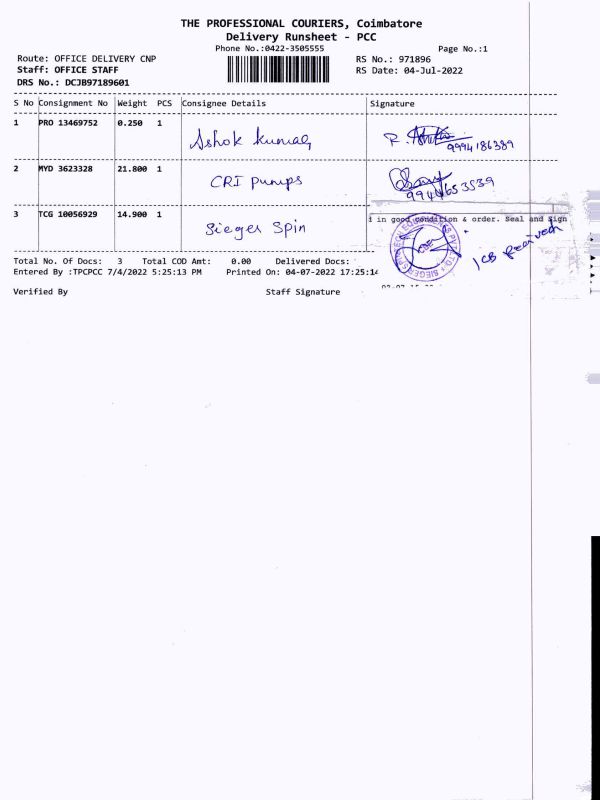 THE PROFESSIONAL COURIERS, Coimbatore
Delivery Runsheet - PCC
Phone No.:0422-3505555 Page No.:1
Route: OFFICE DELIVERY CNP RS No.: 971896
Staff: OFFICE STAFF RS Date: 04-Jul-2022
DRS No.: DCJB97189601
S No Consignment No Weight PCS Consignee Details Signature
1 PRO 13469752 0.250 1 Ashok kumar R. 9994186389
2 MYD 3623328 21.800 1 CRI pumps 9944653539
3 TCG 10056929 14.900 1 Sieger Spin in good condition & order. Seal and Sign
1CB Received
Total No. Of Docs: 3 Total COD Amt: 0.00 Delivered Docs:
Entered By :TPCPCC 7/4/2022 5:25:13 PM Printed On: 04-07-2022 17:25:14
Verified By Staff Signature